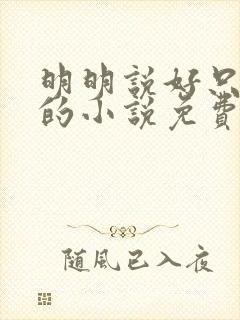 明明說好只
的小說免費
随風已入夜